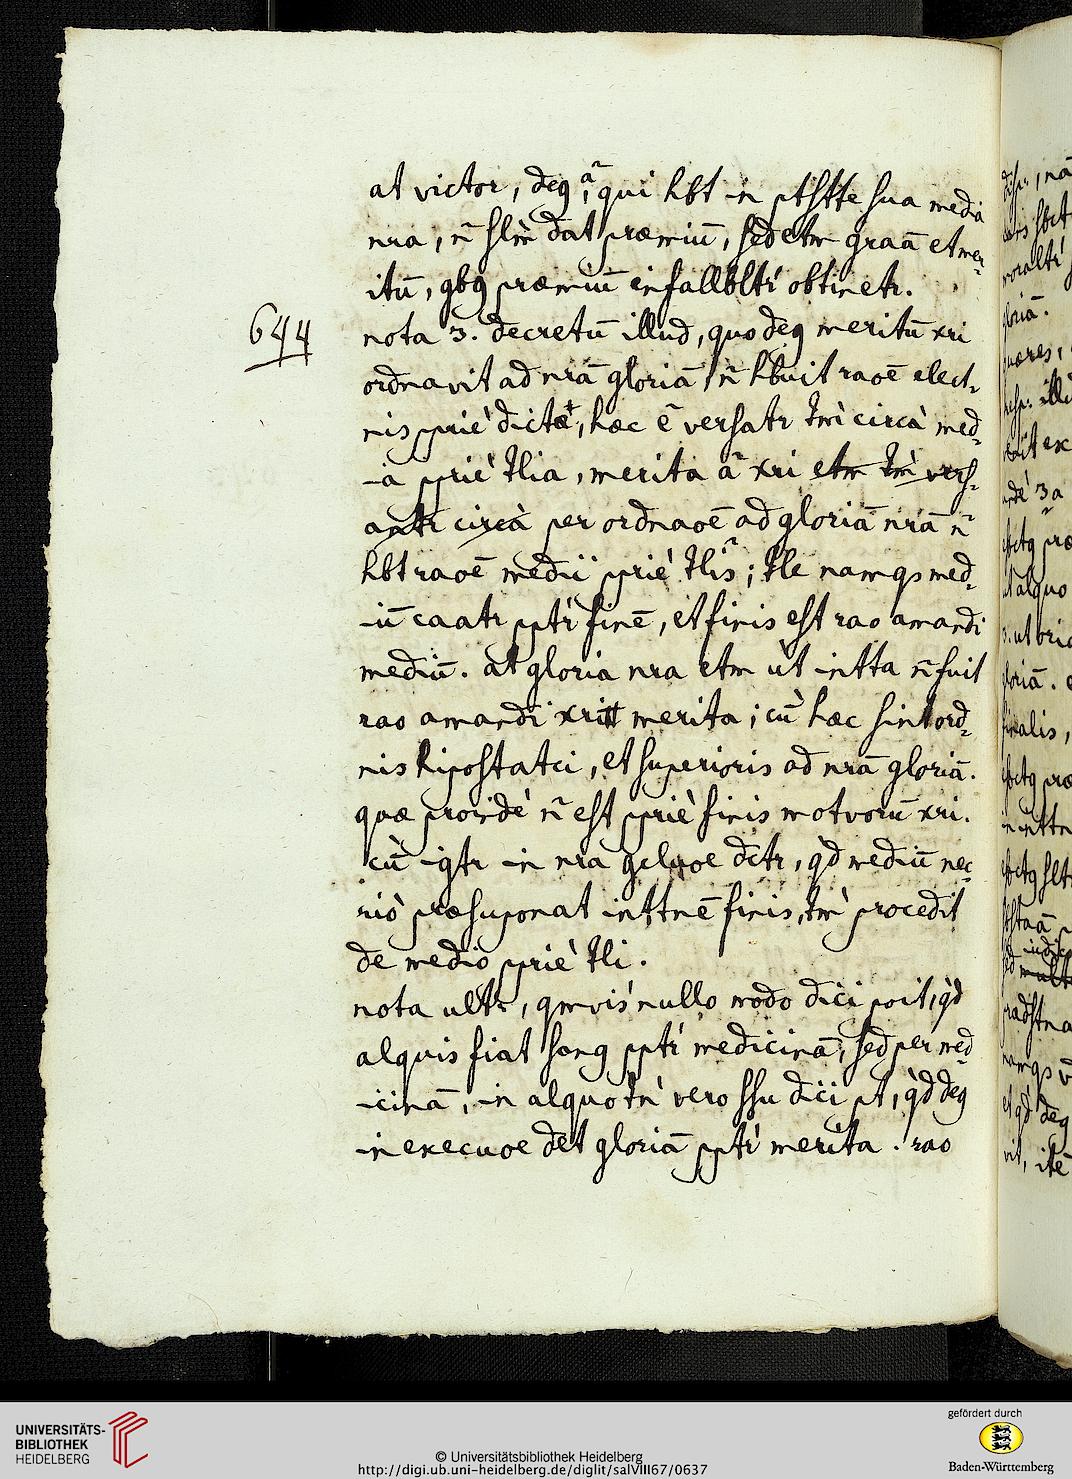 at victor, deg ã, qui hbt in ptstte sua media
nra, ñ slm̃ dat præmiũ, sed etm graã et mer-
itũ, qbg præmiũ infallbltr obtinetr.
644
nota 3. decretũ illud, quo deg meritũ xri
ordnavit ad nrã gloriã ñ hbuit raoẽ elect-
nis pprie dictæ, hæc ẽ versatr tm̃ circà med-
ia pprie tlia, merita ã xri etm tm̃ vers-
antr circà per ordnaoẽ ad gloriã nrã ñ
hbt raoẽ medii pprie tlis; tle namqs med-
iũ caatr pptr finẽ, et finis est rao amandi
mediũ. at gloria nra etm ùt intta ñ fuit
rao amandi xri merita; cũ hæc sint ord-
nis hipostatci, et superioris ad nrã gloriã.
quæ proindè ñ est pprie finis motvorũ xri.
cũ igtr in nra gclusoe dctr, qd mediũ nec-
riò præsuponat inttnẽ finis, tm̃ procedit
de medio pprie tli.
nota ultr, qmvis nullo modo dici poit, qd
alquis fiat sang pptr medicinã, sed per med-
icinã, in alquo tñ vero ssu dici pt, qd deg
in execuoe det gloriã pptr merita. rao
UNIVERSITÄTS-
BIBLIOTHEK
HEIDELBERG
© Universitätsbibliothek Heidelberg
http://digi.ub.uni-heidelberg.de/diglit/salVIII67/0637
gefördert durch
Baden-Württemberg